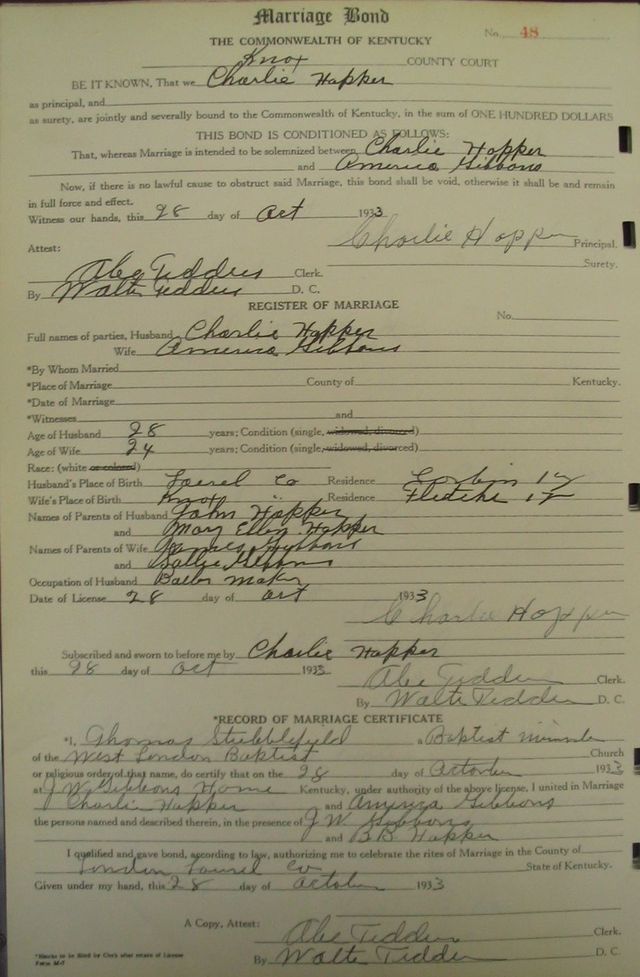 Marriage Bond
No. 48
THE COMMONWEALTH OF KENTUCKY
Knox COUNTY COURT
BE IT KNOWN, That we Charlie Hopper
as principal, and
as surety, are jointly and severally bound to the Commonwealth of Kentucky, in the sum of ONE HUNDRED DOLLARS
THIS BOND IS CONDITIONED AS FOLLOWS:
That, whereas Marriage is intended to be solemnized between Charlie Hopper
and America Gibbons
Now, if there is no lawful cause to obstruct said Marriage, this bond shall be void, otherwise it shall be and remain
in full force and effect.
Witness our hands, this 28 day of Oct 1933
Charlie Hopper Principal.
Attest: Surety.
Abe Tedders Clerk.
By Walter Tedders D. C.
REGISTER OF MARRIAGE
No.
Full names of parties, Husband Charlie Hopper
Wife America Gibbons
*By Whom Married
*Place of Marriage County of Kentucky.
*Date of Marriage
*Witnesses and
Age of Husband 28 years; Condition (single, widowed, divorced)
Age of Wife 24 years; Condition (single, widowed, divorced)
Race: (white or colored)
Husband's Place of Birth Laurel Co Residence Corbin Ky
Wife's Place of Birth Knox " Residence Ky
Names of Parents of Husband John Hopper
and Mary Ellen Hopper
Names of Parents of Wife Gibbons
and Sallie Gibbons
Occupation of Husband maker
Date of License 28 day of Oct 1933
Charlie Hopper
Subscribed and sworn to before me by Charlie Hopper
this 28 day of Oct 1933
Abe Tedders Clerk.
By Walter Tedders D. C.
*RECORD OF MARRIAGE CERTIFICATE
*I, Thomas Stubblefield a Baptist minister
of the West London Baptist Church
or religious order of that name, do certify that on the 28 day of October 1933
at J W Gibbons Home Kentucky, under authority of the above license, I united in Marriage
Charlie Hopper and America Gibbons
the persons named and described therein, in the presence of J W Gibbons
and B B Hopper
I qualified and gave bond, according to law, authorizing me to celebrate the rites of Marriage in the County of
London Laurel Co State of Kentucky.
Given under my hand, this 28 day of October 1933
A Copy, Attest: Abe Tedders Clerk.
By Walter Tedders D. C.
*Blanks to be filled by Clerk after return of License
Form M-7